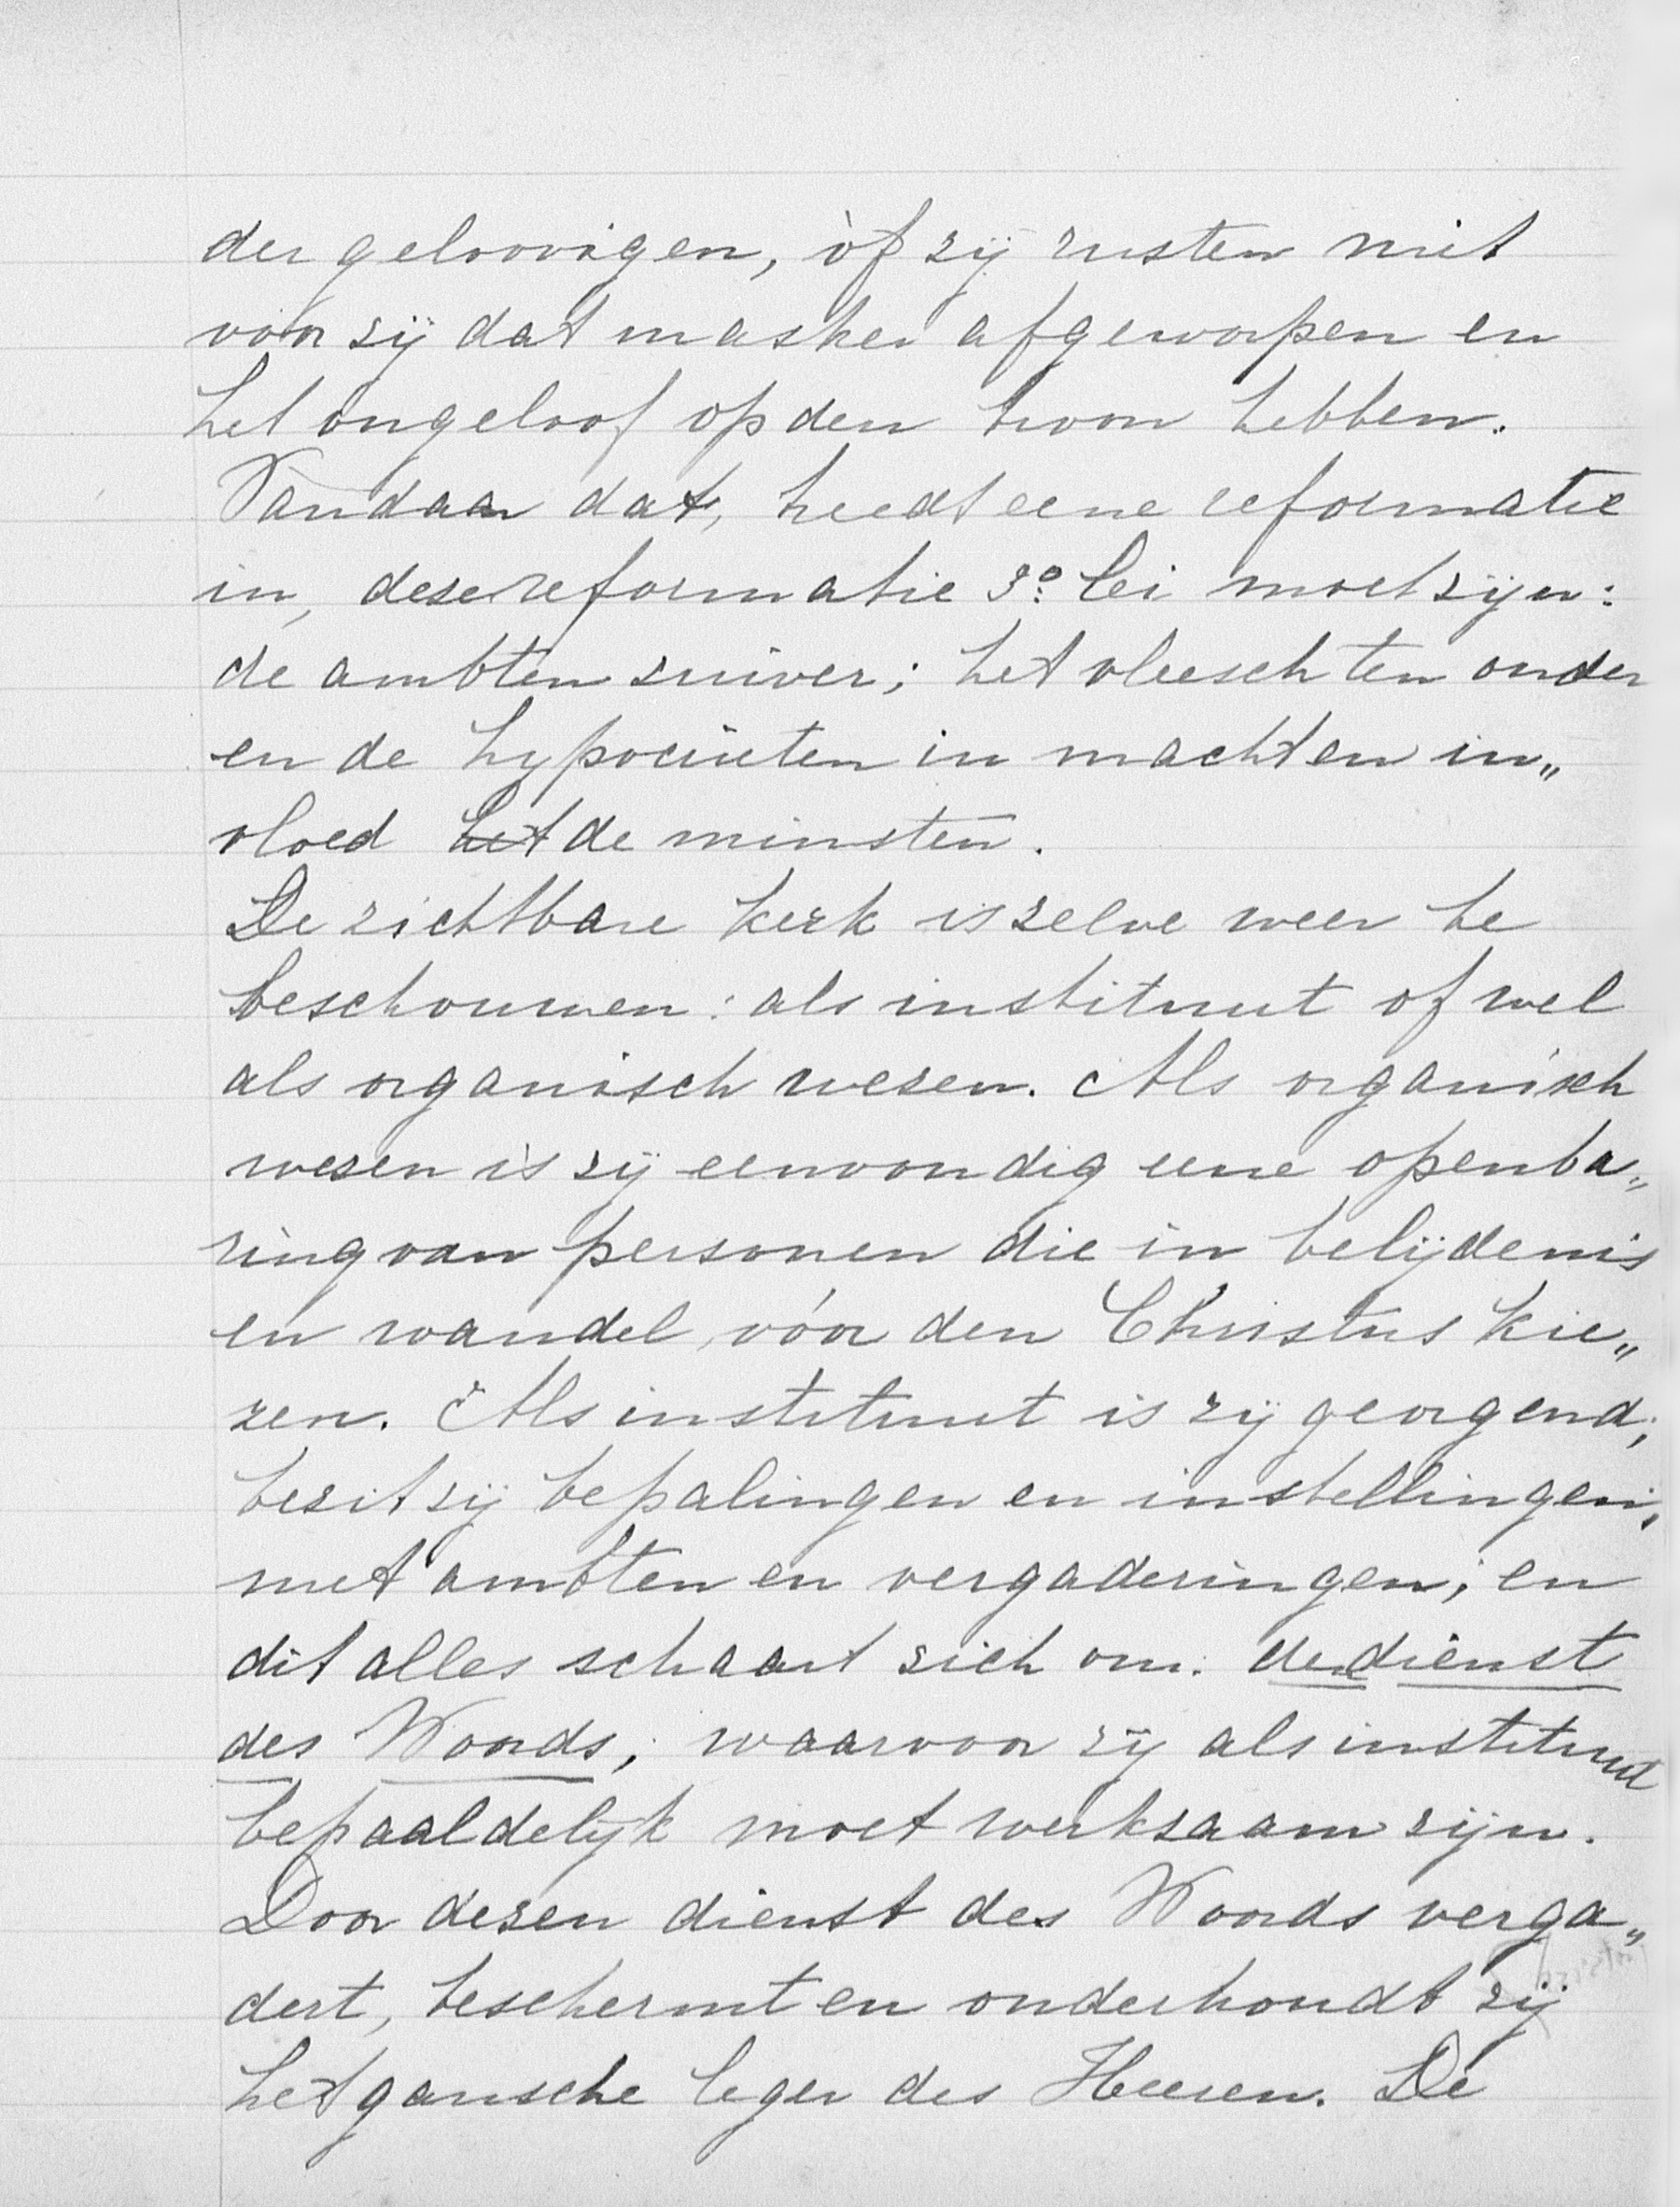 der geloovigen, òf zij rusten niet
vóór zij dat masker afgeworpen en
het ongeloof op den troon hebben.
Vandaar dat, treedt eene reformatie
in, deze reformatie 3º lei moet zijn:
de ambten zuiver; het vleesch ten onder
en de hypocrieten in macht en in„
vloed het de minsten.
De zichtbare kerk is zelve weer te
beschouwen: als instituut of wel
als organisch wezen. Als organisch
wezen is zij eenvoudig eene openba„
ring van personen die in belijdenis
en wandel vóór den Christus kie„
zen. Als instituut is zij georgend;
bezit zij bepalingen en instellingen,
met ambten en vergaderingen; en
dit alles schaart zich om den dienst
des Woords, waarvoor zij als instituut
bepaaldelijk moet werkzaam zijn.
Door dezen dienst des Woords verga„
dert, beschermt en onderhoudt zij
het gansche leger des Heeren. De